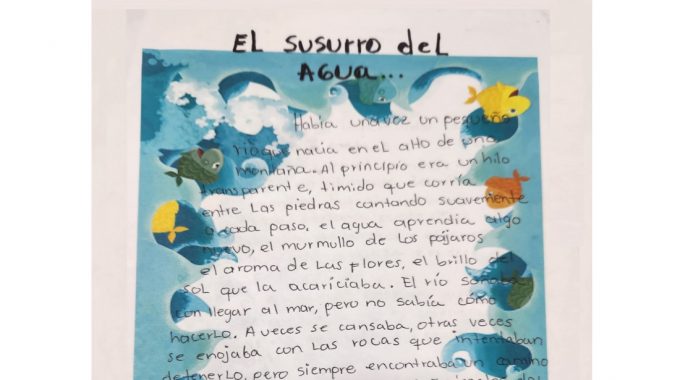 EL SUSURRO del
AGUA...
Había una vez un pequeño
río que nacía en el alto de una
montaña. Al principio era un hilo
transparente, timido que corría
entre las piedras cantando suavemente
a cada paso, el agua aprendía algo
nuevo, el murmullo de los pájaros
el aroma de las flores, el brillo del
sol que la acariciaba. El río soñaba
con llegar al mar, pero no sabía cómo
hacerlo. A veces se cansaba, otras veces
se enojaba con las rocas que intentaban
detenerlo, pero siempre encontraba un camino